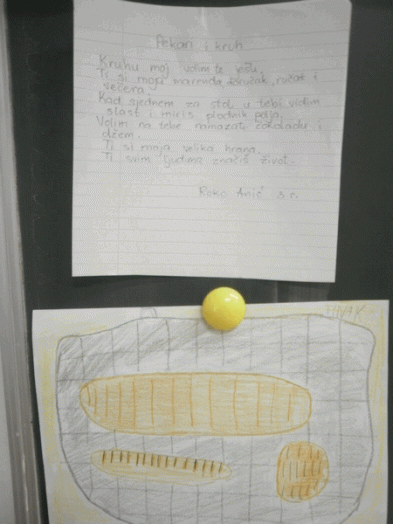 Pekari i kruh
Kruhu moj volim te jesti.
Ti si moja marenda, doručak, ručak i
večera.
Kad sjednem za stol u tebi vidim
slast i miris plodnih polja.
Volim na tebe namazati čokoladu i
džem.
Ti si moja velika hrana.
Ti svim ljudima značiš život.
Roko Anić 5.c.